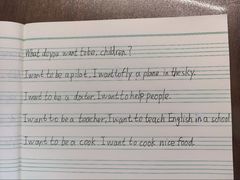 What do you want to be, children?
I want to be a pilot. I want to fly a plane in the sky.
I want to be a doctor. I want to help people.
I want to be a teacher. I want to teach English in a school.
I want to be a cook. I want to cook nice food.